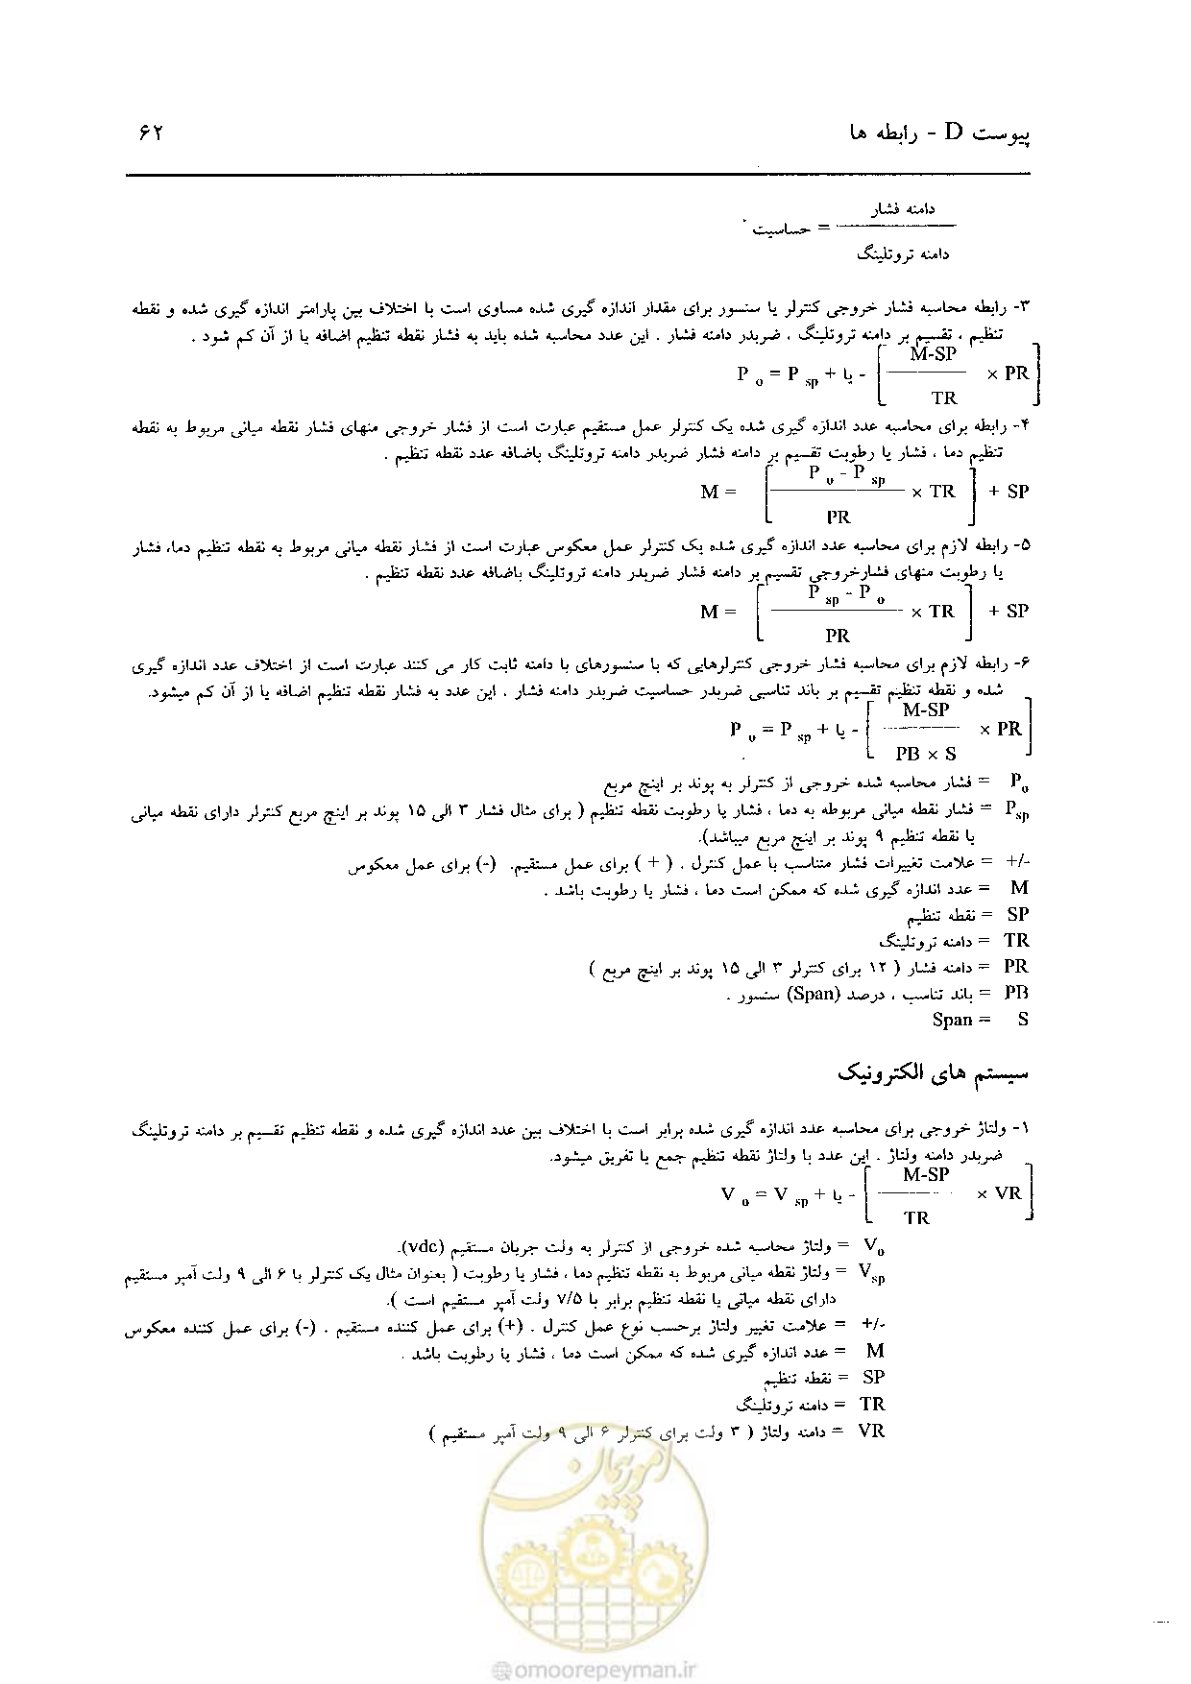 پیوست D - رابطه ها
۶۲
دامنه فشار
حساسیت =
دامنه تروتلینگ
۳- رابطه محاسبه فشار خروجی کنترلر یا سنسور برای مقدار اندازه گیری شده مساوی است با اختلاف بین پارامتر اندازه گیری شده و نقطه
تنظیم ، تقسیم بر دامنه تروتلینگ ، ضربدر دامنه فشار . این عدد محاسبه شده باید به فشار نقطه تنظیم اضافه یا از آن کم شود .
M-SP
P o = P sp + یا - [ × PR ]
TR
۴- رابطه برای محاسبه عدد اندازه گیری شده یک کنترلر عمل مستقیم عبارت است از فشار خروجی منهای فشار نقطه میانی مربوط به نقطه
تنظیم دما ، فشار یا رطوبت تقسیم بر دامنه فشار ضربدر دامنه تروتلینگ باضافه عدد نقطه تنظیم .
P o - P sp
M = [ × TR ] + SP
PR
۵- رابطه لازم برای محاسبه عدد اندازه گیری شده یک کنترلر عمل معکوس عبارت است از فشار نقطه میانی مربوط به نقطه تنظیم دما، فشار
یا رطوبت منهای فشارخروجی تقسیم بر دامنه فشار ضربدر دامنه تروتلینگ باضافه عدد نقطه تنظیم .
P sp - P o
M = [ × TR ] + SP
PR
۶- رابطه لازم برای محاسبه فشار خروجی کنترلرهایی که با سنسورهای با دامنه ثابت کار می کنند عبارت است از اختلاف عدد اندازه گیری
شده و نقطه تنظیم تقسیم بر باند تناسبی ضربدر حساسیت ضربدر دامنه فشار . این عدد به فشار نقطه تنظیم اضافه یا از آن کم میشود.
M-SP
P o = P sp + یا - [ × PR ]
PB × S
Po = فشار محاسبه شده خروجی از کنترلر به پوند بر اینچ مربع
Psp = فشار نقطه میانی مربوطه به دما ، فشار یا رطوبت نقطه تنظیم ( برای مثال فشار ۳ الی ۱۵ پوند بر اینچ مربع کنترلر دارای نقطه میانی
یا نقطه تنظیم ۹ پوند بر اینچ مربع میباشد).
+/- = علامت تغییرات فشار متناسب با عمل کنترل . ( + ) برای عمل مستقیم. (-) برای عمل معکوس
M = عدد اندازه گیری شده که ممکن است دما ، فشار یا رطوبت باشد .
SP = نقطه تنظیم
TR = دامنه تروتلینگ
PR = دامنه فشار ( ۱۲ برای کنترلر ۳ الی ۱۵ پوند بر اینچ مربع )
PB = باند تناسب ، درصد (Span) سنسور .
S = Span
سیستم های الکترونیک
۱- ولتاژ خروجی برای محاسبه عدد اندازه گیری شده برابر است با اختلاف بین عدد اندازه گیری شده و نقطه تنظیم تقسیم بر دامنه تروتلینگ
ضربدر دامنه ولتاژ . این عدد با ولتاژ نقطه تنظیم جمع یا تفریق میشود.
M-SP
V o = V sp + یا - [ × VR ]
TR
Vo = ولتاژ محاسبه شده خروجی از کنترلر به ولت جریان مستقیم (vdc).
Vsp = ولتاژ نقطه میانی مربوط به نقطه تنظیم دما ، فشار یا رطوبت ( بعنوان مثال یک کنترلر با ۶ الی ۹ ولت آمپر مستقیم
دارای نقطه میانی یا نقطه تنظیم برابر با ۷/۵ ولت آمپر مستقیم است ).
+/- = علامت تغییر ولتاژ برحسب نوع عمل کنترل . (+) برای عمل کننده مستقیم . (-) برای عمل کننده معکوس
M = عدد اندازه گیری شده که ممکن است دما ، فشار یا رطوبت باشد .
SP = نقطه تنظیم
TR = دامنه تروتلینگ
VR = دامنه ولتاژ ( ۳ ولت برای کنترلر ۶ الی ۹ ولت آمپر مستقیم )
امور پیمان
@omoorepeyman.ir